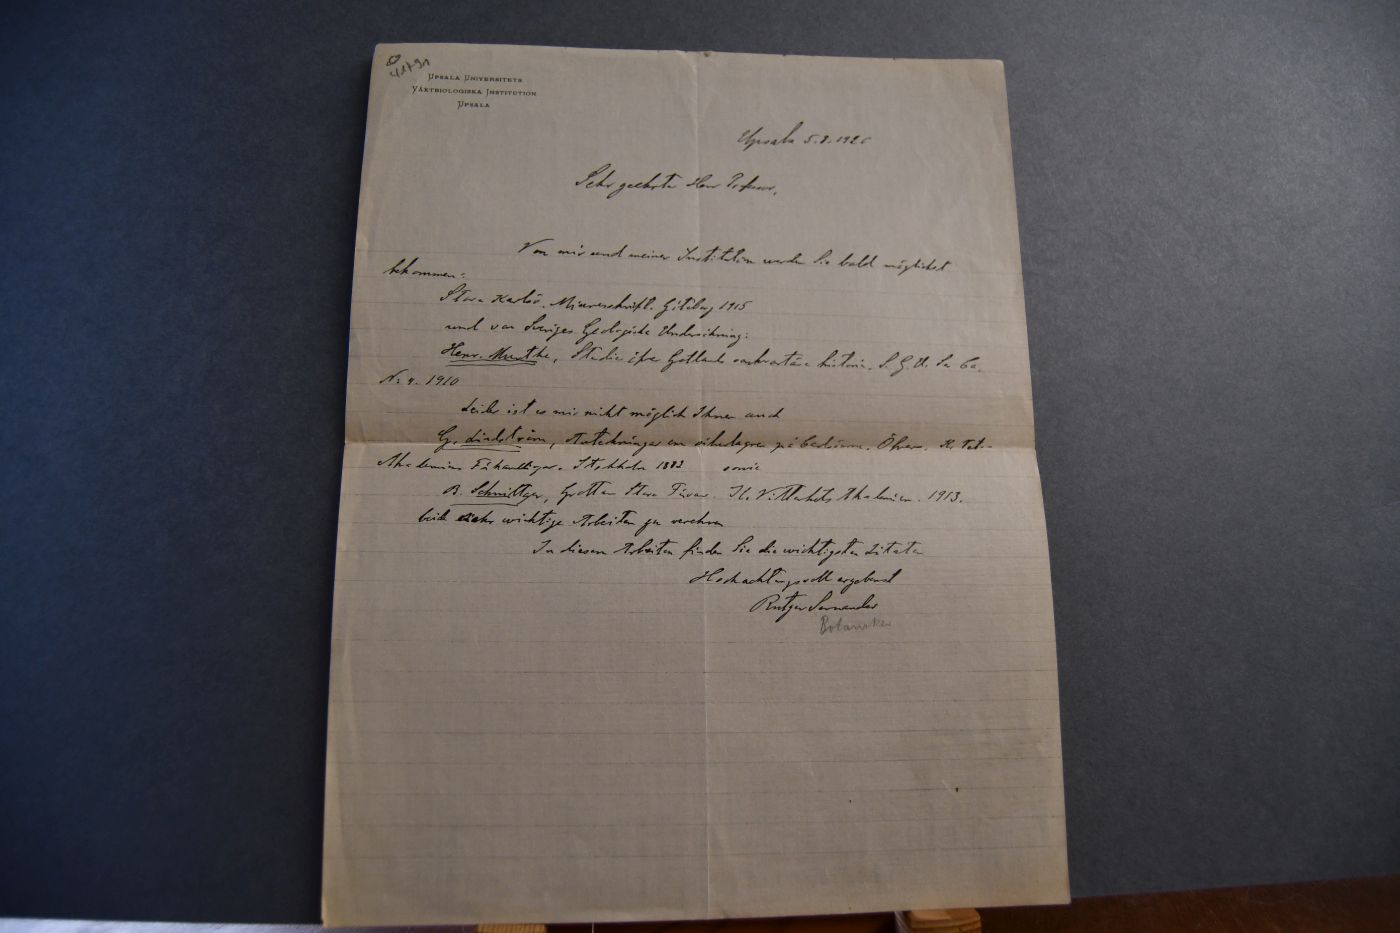 UPSALA UNIVERSITETS
VÄXTBIOLOGISKA INSTITUTION
UPSALA
Upsala 5.8.192
Sehr geehrter Herr Professor,
Von mir und meiner Institution werden Sie bald möglichst
bekommen:
Stora Karlsö. Göteborg 1915
und von Sveriges Geologiska Undersökning:
Henr. Munthe, Studier öfver Gotlands senkvartära historia. S. G. U. Ser Ca.
N:o 4. 1910
Leider ist es mir nicht möglich Ihnen auch
G. Lindström, Anteckningar om Öfvers. K. Vet.-
Akademiens Förhandlingar. Stockholm 1882 sowie
B. Schnittger, Grottan Stora Förvar. K. Vitterhets Akademien. 1913.
beide sehr wichtige Arbeiten zu verehren
In diesen Arbeiten finden Sie die wichtigsten Litaten
Hochachtungsvoll ergebenst
Rutger Sernander
Botaniker